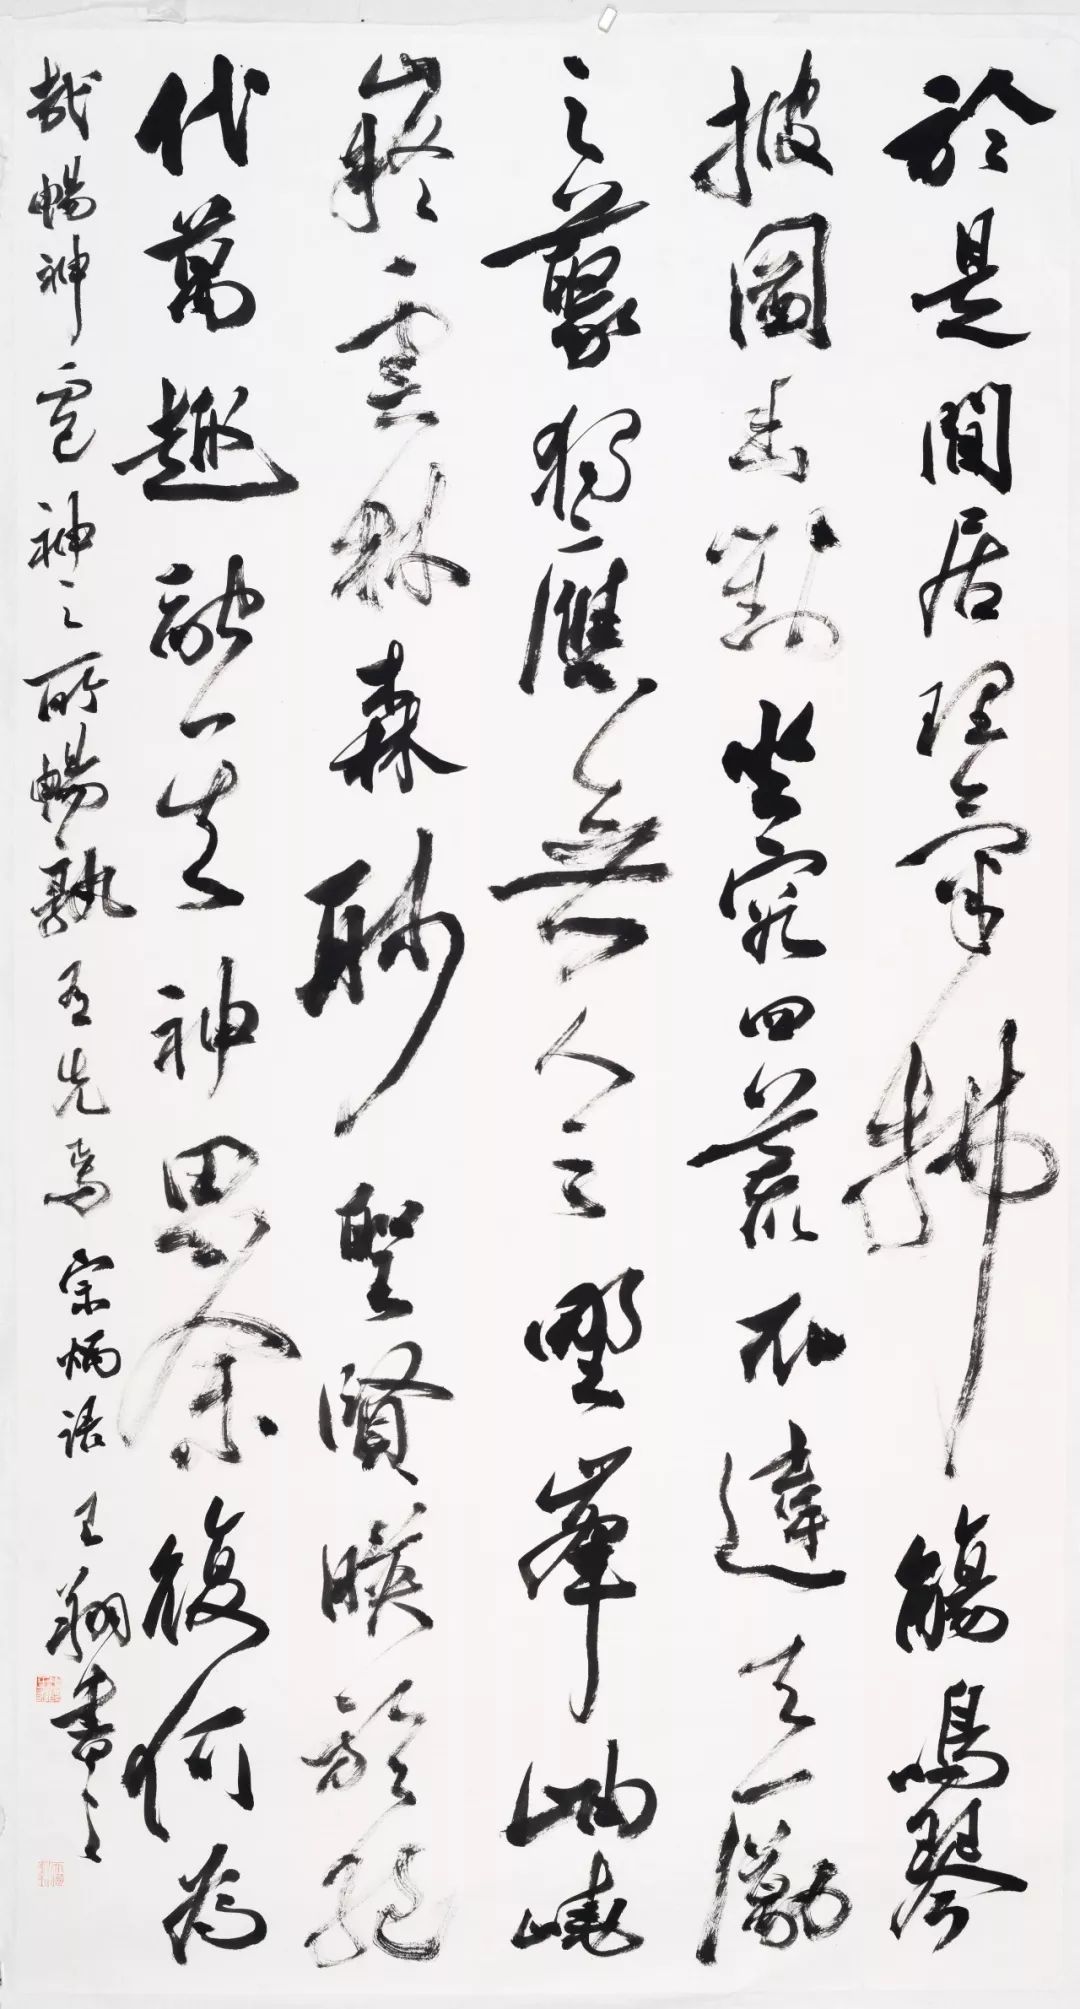 於是閒居理氣拂觴鳴琴
披圖幽對坐究四荒不違天勵
之藂獨應無人之野峯岫嶢
嶷雲林森眇聖賢暎於絕
代萬趣融其神思余復何為
哉暢神而已神之所暢孰有先焉宗炳語王翔書之